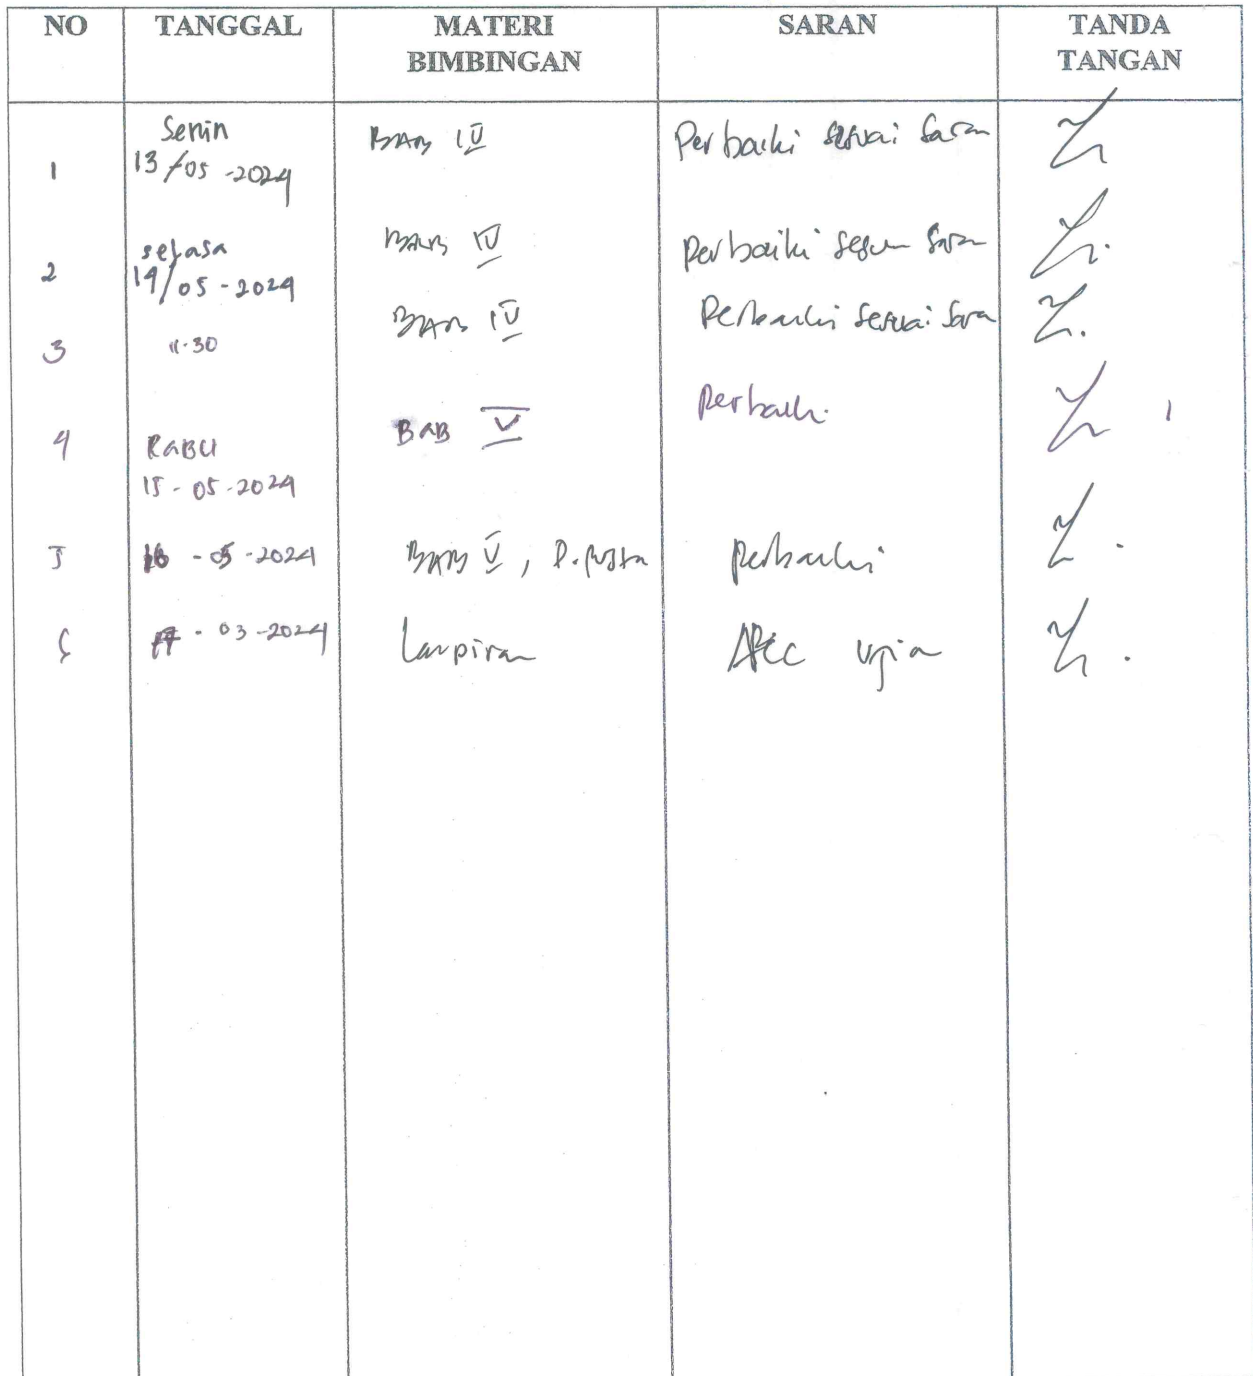 NO TANGGAL MATERI BIMBINGAN SARAN TANDA TANGAN
1 Senin 13/05-2024 BAB IV Perbaiki sesuai Saran
2 selasa 14/05-2024 BAB IV Perbaiki sesuai Saran
3 11.30 BAB IV Perbaiki sesuai Saran
4 RABU 15-05-2024 BAB V Perbaiki
5 16-05-2024 BAB V, D. pustaka perbaiki
6 17-03-2024 Lampiran ACC ujian